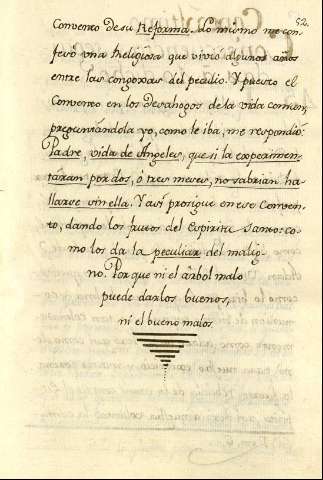 52.
Convento de su Reforma. Lo mismo me con-
fesó vna Religiosa que vivió algunos años
entre las congoxas del peculio. Y puesto el
Convento en los Desahogos de la vida comun,
preguntándola yo, como le iba, me respondió:
Padre, vida de Angeles, que si la experimen-
táran por dos, ó tres meses, no sabrian ha-
llarse sin ella. Y asi prosigue en ese Conven-
to, dando los frutos del Espiritu Santo: co-
mo los da la peculiar del malig-
no. Porque ni el árbol malo
puede darlos buenos,
ni el bueno malos